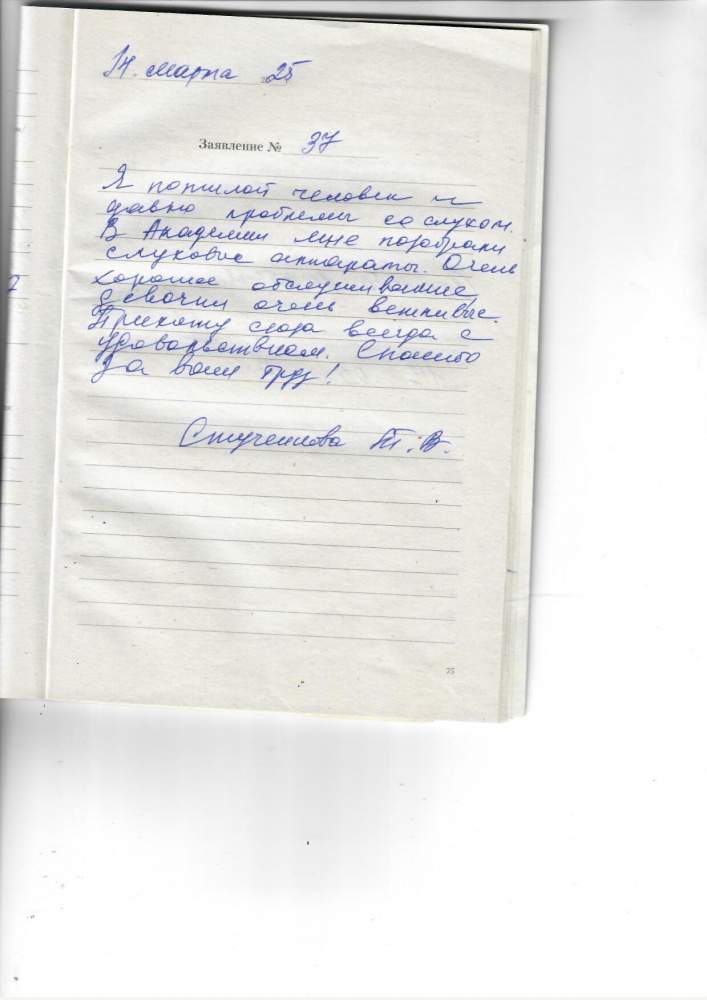 14. марта 2025
Заявление № 37
Я пожилой человек и
давно проблемы со слухом.
В Академии мне подобрали
слуховые аппараты. Очень
хорошее обслуживание,
девочки очень вежливые.
Прихожу сюда всегда с
удовольствием. Спасибо
за ваш труд!
Т. В.
75